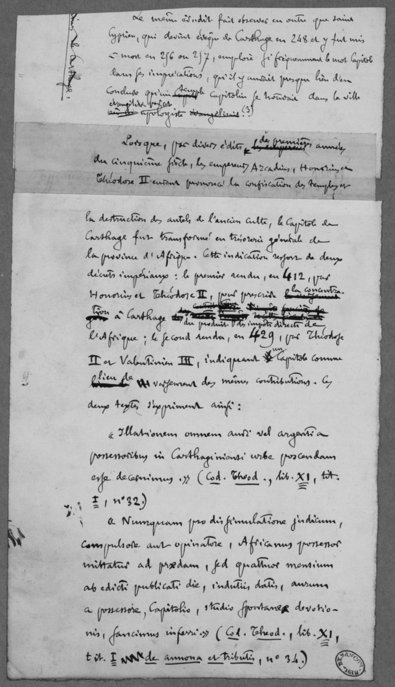 Le même érudit fait observer en outre que saint
Cyprien, qui devint évêque de Carthage en 248 et y fut mis
à mort en 256 ou 257, emploie si fréquemment le mot Capitole
dans ses imprécations, qu'il y aurait presque lieu d'en
conclure qu'un Capitolin se trouvait dans la ville
apologiste (3)
Lorsque, par divers édits, des premières années
du cinquième siècle, les empereurs Arcadius, Honorius et
Théodose II eurent prononcé la confiscation des temples et
la destruction des autels de l'ancien culte, le Capitole de
Carthage fut transformé en trésorerie générale de
la province d'Afrique. Cette indication ressort de deux
décrets impériaux : le premier rendu, en 412, par
Honorius et Théodose II, pour prescrire la concentra-
tion à Carthage
du produit des impôts directs de
l'Afrique ; le second rendu, en 429, par Théodose
II et Valentinien III, indiquant un Capitole comme
lieu de versement des mêmes contributions. Ces
deux textes s'expriment ainsi :
« Illationem omnem auri vel argenti a
possessoribus in Carthaginiensi urbe poscendam
esse decernimus. » (Cod. Theod., lib. XI, tit.
I, n° 32.)
« Nunquam pro dissimulatione judicum,
compulsore aut opinatore, Africanus possessor
mittatur ad prædam, sed quatuor mensium
ab edicti publicati die, indutiis datis, aurum
a possessore, Capitolio, studio spontaneæ devotio-
nis, sancimus inferri. » (Cod. Theod., lib. XI,
tit. I de annona et tributis, n° 34.)